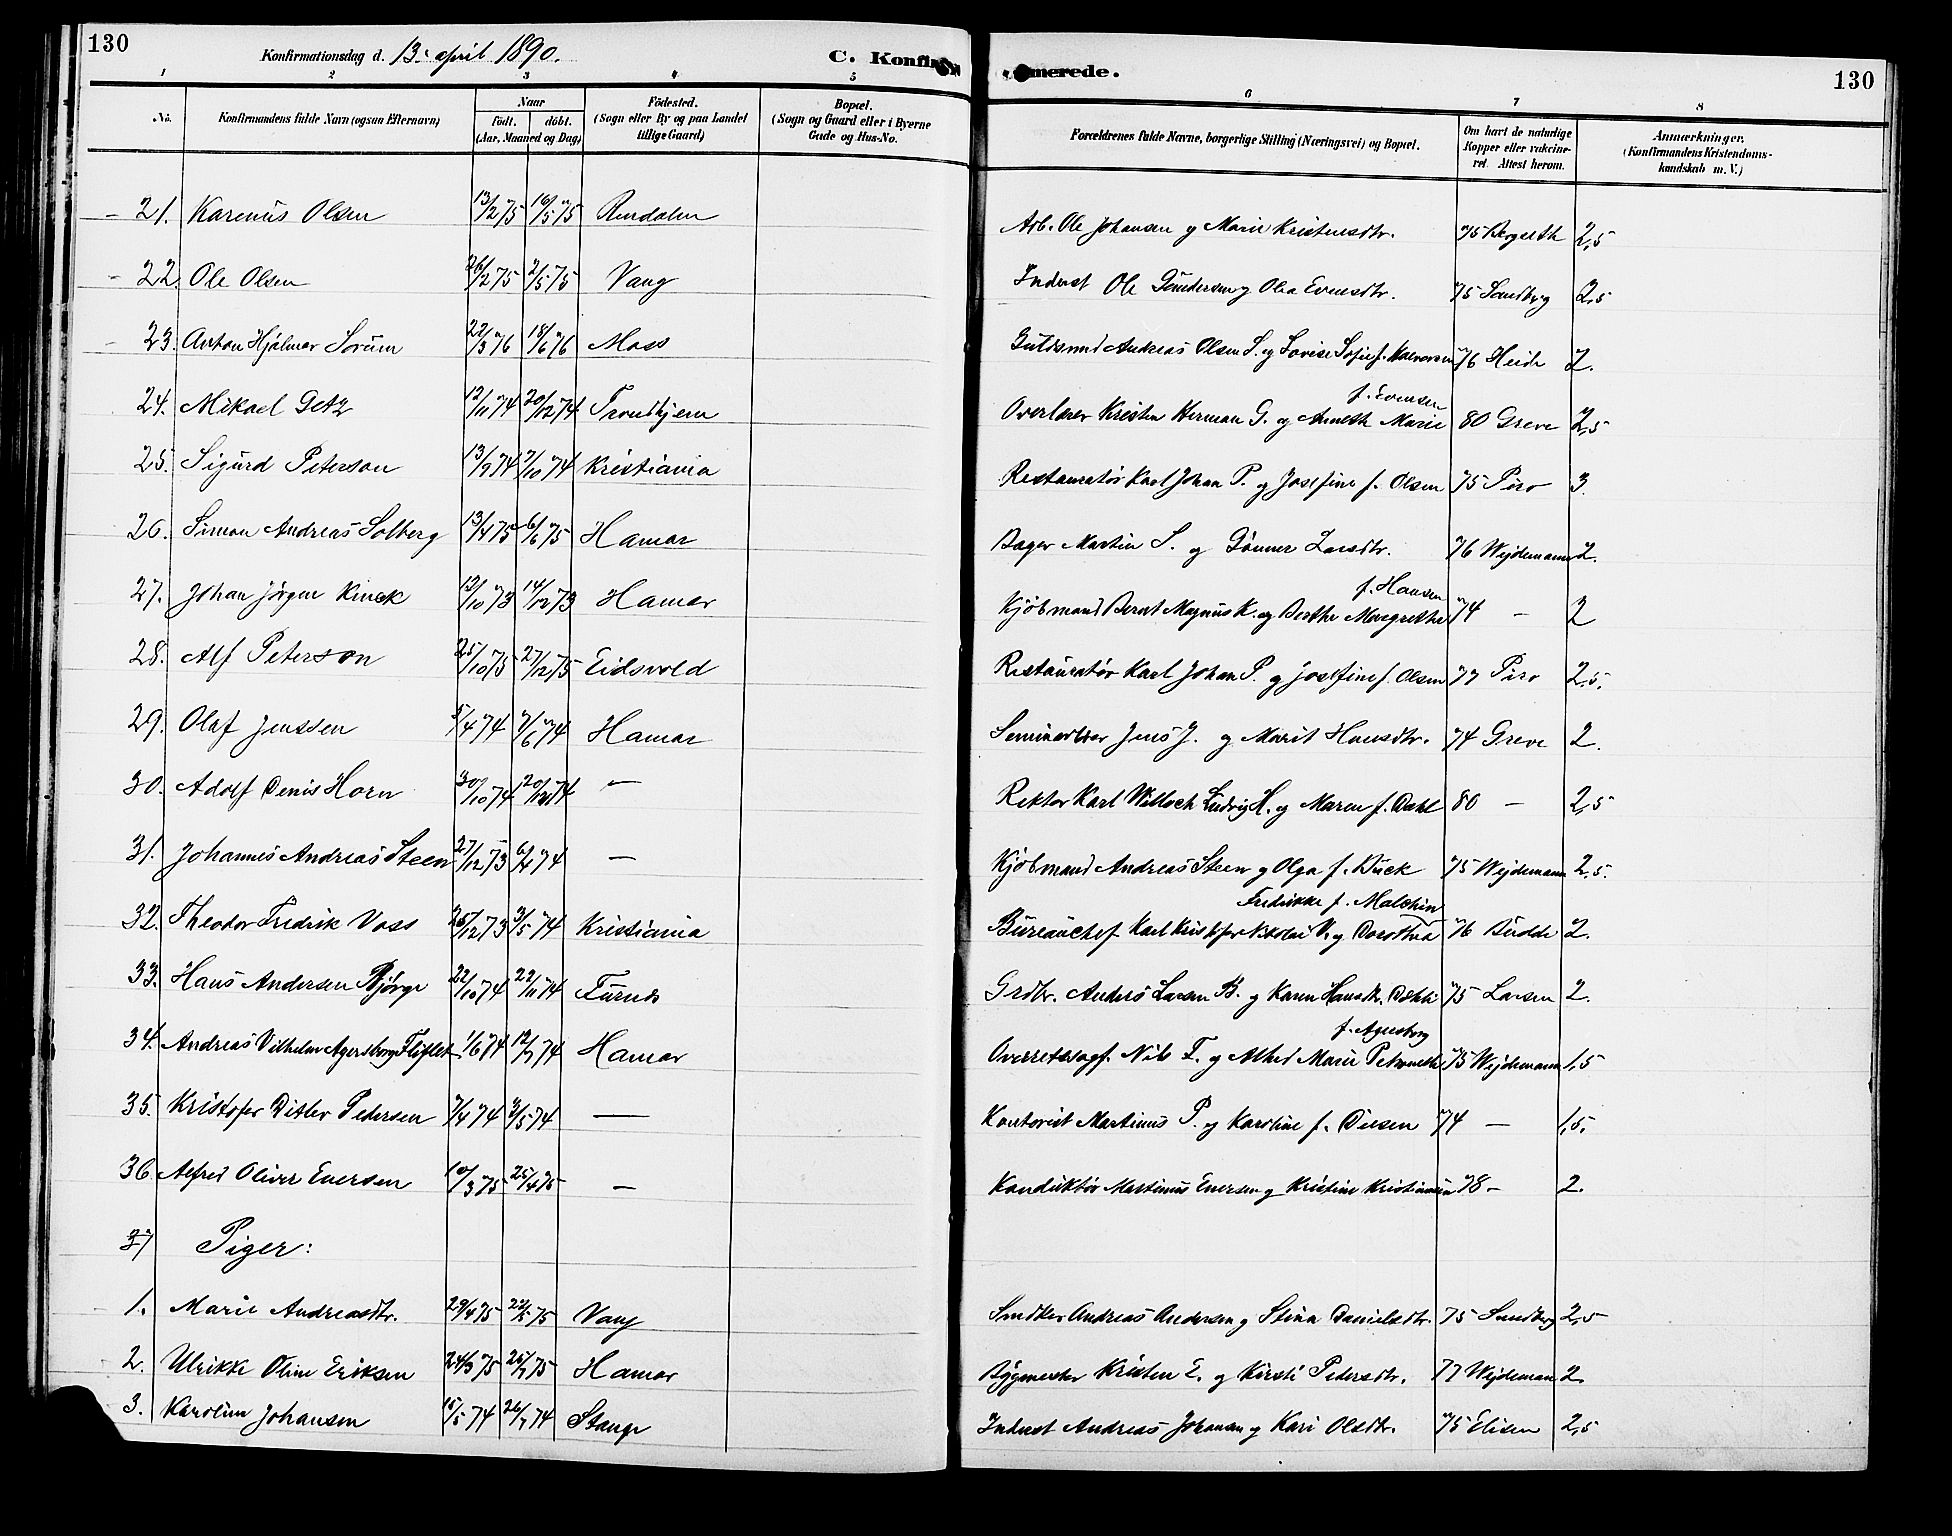 130
Konfirmationsdag d. 13. april 1890.
C. Konfirmerede.
130
1 2 3 4 5 6 7 8
No. Konfirmandens fulde Navn (ogsaa Efternavn) Naar født. døbt. (Aar, Maaned og Dag) Fødested. (Sogn eller By og paa Landet tillige Gaard) Bopæl. (Sogn og Gaard eller i Byerne Gade og Hus-No. Forældrenes fulde Navne, borgerlige Stilling (Næringsvei) og Bopæl. Om havt de naturlige Kopper eller vakcineret. Attest herom. Anmærkninger. (Konfirmandens Kristendomskundskab m. V.)
21. Karenus Olsen 13/2 75 16/5 75 Rendalen Arb. Ole Johansen og Marie Kristensdtr. 75 2,5
22. Ole Olsen 26/2 75 2/5 75 Vang Inderst Ole Gundersen og Olea Evensdtr. 75 Sandberg 2,5
23. Anton Hjalmar Sørum 22/3 76 18/6 76 Moss Guldsmed Andreas Olsen S. og Lovise Sofie f. Halvorsen 76 Heide 2.
24. Mikael Getz 12/11 74 20/12 74 Trondhjem Overlærer Kristen Herman G. og Anneth Marie f. Evensen 80 Greve 2,5
25. Sigurd Peterson 13/9 74 7/10 74 Kristiania Restauratør Karl Johan P. og Josefine f. Olsen 75 Piro 3.
26. Simon Andreas Solberg 13/4 75 6/6 75 Hamar Bager Martin S. og Gunner Larsdtr. 76 Wejdemann 2.
27. Johan Jörgen Kinck 12/10 73 14/12 73 Hamar Kjöbmand Bernt Magnus K. og Berthe Margrethe f. Hansen 74 — 2
28. Alf Peterson 25/10 75 27/12 75 Eidsvold Restauratør Karl Johan P. og Josefine f. Olsen 77 Piro 2,5.
29. Olaf Jenssen 5/4 74 7/6 74 Hamar Seminarlærer Jens J. og Marit Hansdtr. 74 Greve 2.
30. Adolf Denis Horn 30/10 74 20/12 74 — Rektor Karl Willoch Ludvig H. og Maren f. Dahl 80 — 2,5
31. Johannes Andreas Steen 27/12 73 6/4 74 — Kjöbmand Andreas Steen og Olga f. Buck 75 Wejdemann 2,5.
32. Theodor Fredrik Voss 25/12 73 3/5 74 Kristiania Bureauchef Karl Kristofer Nikolai V. og Dorothea Fredrikke f. Malchin 76 Budde 2.
33. Hans Andersen Bjørge 22/10 74 22/11 74 Furnes Grdbr. Anders Larsen B. og Karen Hansdtr. 75 Larsen 2.
34. Andreas Vilhelm Agersborg Fliflet 1/6 74 12/7 74 Hamar Overretssagf. Nils F. og Alhed Marie Petronelle f. Agersborg 75 Wejdemann 1,5
35. Kristofer Ditlev Pedersen 7/4 74 3/5 74 — Kontorist Martinus P. og Karoline f. Diesen 74 — 1,5.
36 Alfred Oliver Evensen 10/3 75 25/4 75 — Konduktør Martinus Evensen og Kristine Kristiansen 78 — 2.
37 Piger:
1. Marie Andreasdtr. 29/4 75 22/5 75 Vang Andreas Andersen og Stina Danielsdtr. 75 Sandberg 2,5
2. Ulrikke Oline Eriksen 24/3 75 25/7 75 Hamar Bygmester Kristen E. og Kirsti Pedersdtr. 77 Wejdeman 2.
3. Karoline Johansen 15/5 74 26/7 74 Stange Inderst Andreas Johansen og Kari Olsdtr. 75 Elisen 2,5